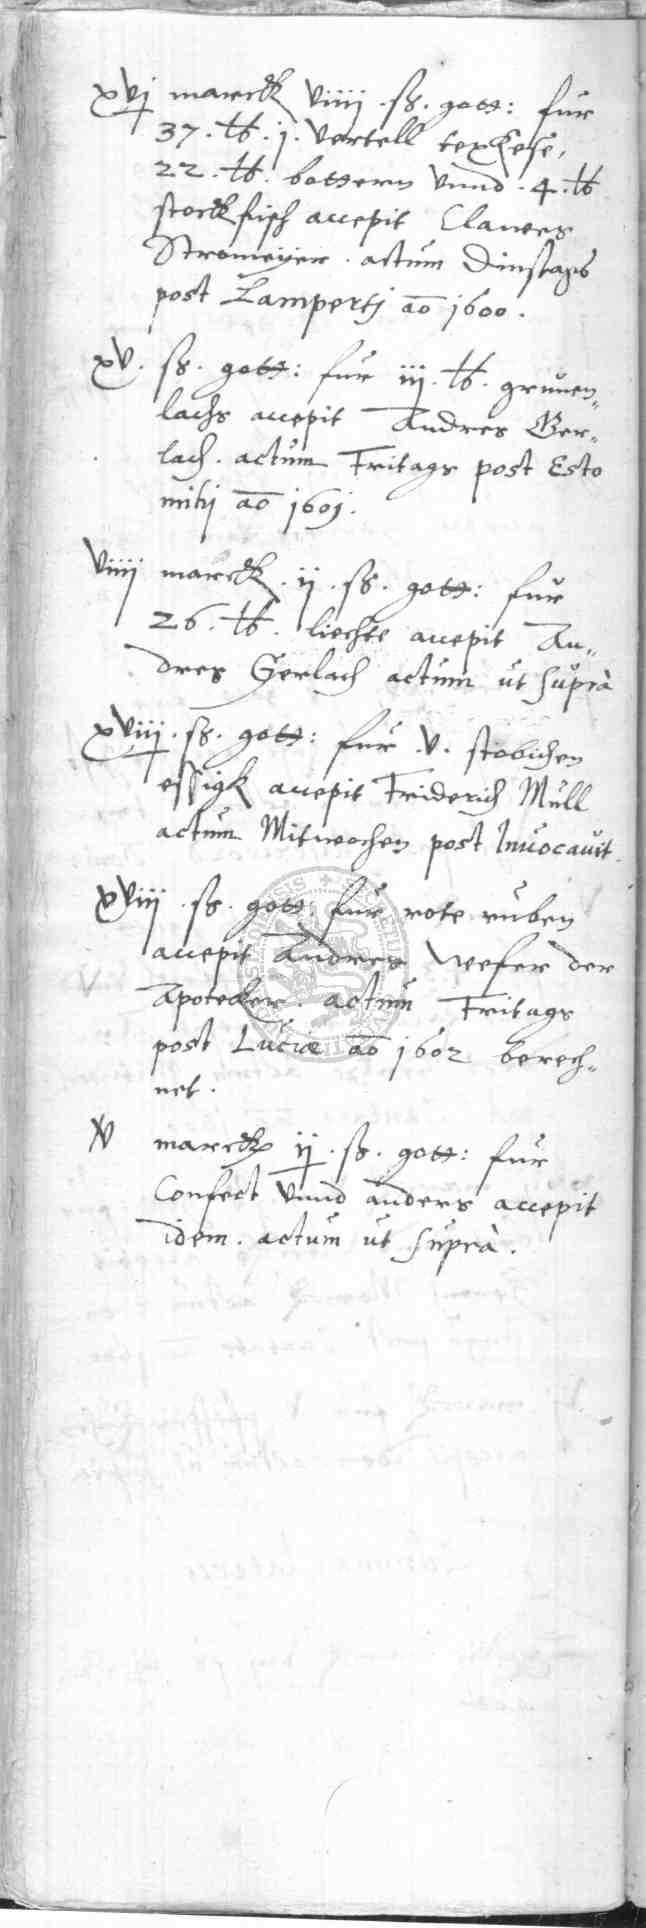 xvj marck viiij ß. gott: fur
37. lb. j. vertell texkese,
22. lb. bottern vnnd . 4. lb
stockfisch accepit Clawes
Stromeyer . actum Dinstags
post Lampertj ao 1600.
xv. ß. gott: fur iij. lb. grunen„
lachs accepit Andres Ger„
lach . actum Fritags post Esto
mihj ao 1601.
viiij marck . ij . ß. gott: fur
26. lb. liechte accepit An„
dres Gerlach actum ut supra
xviij . ß. gott: fur .v. stobichen
essigk accepit Friderich Mull
actum Mitwochen post Invocavit.
xviij . ß. gott: fur rote ruben
accepit Andres Wefer der
Apoteker . actum Fritags
post Luciæ ao 1602 berech„
net .
v marck ij . ß. gott: fur
Confect vnnd anders accepit
idem . actum ut supra .